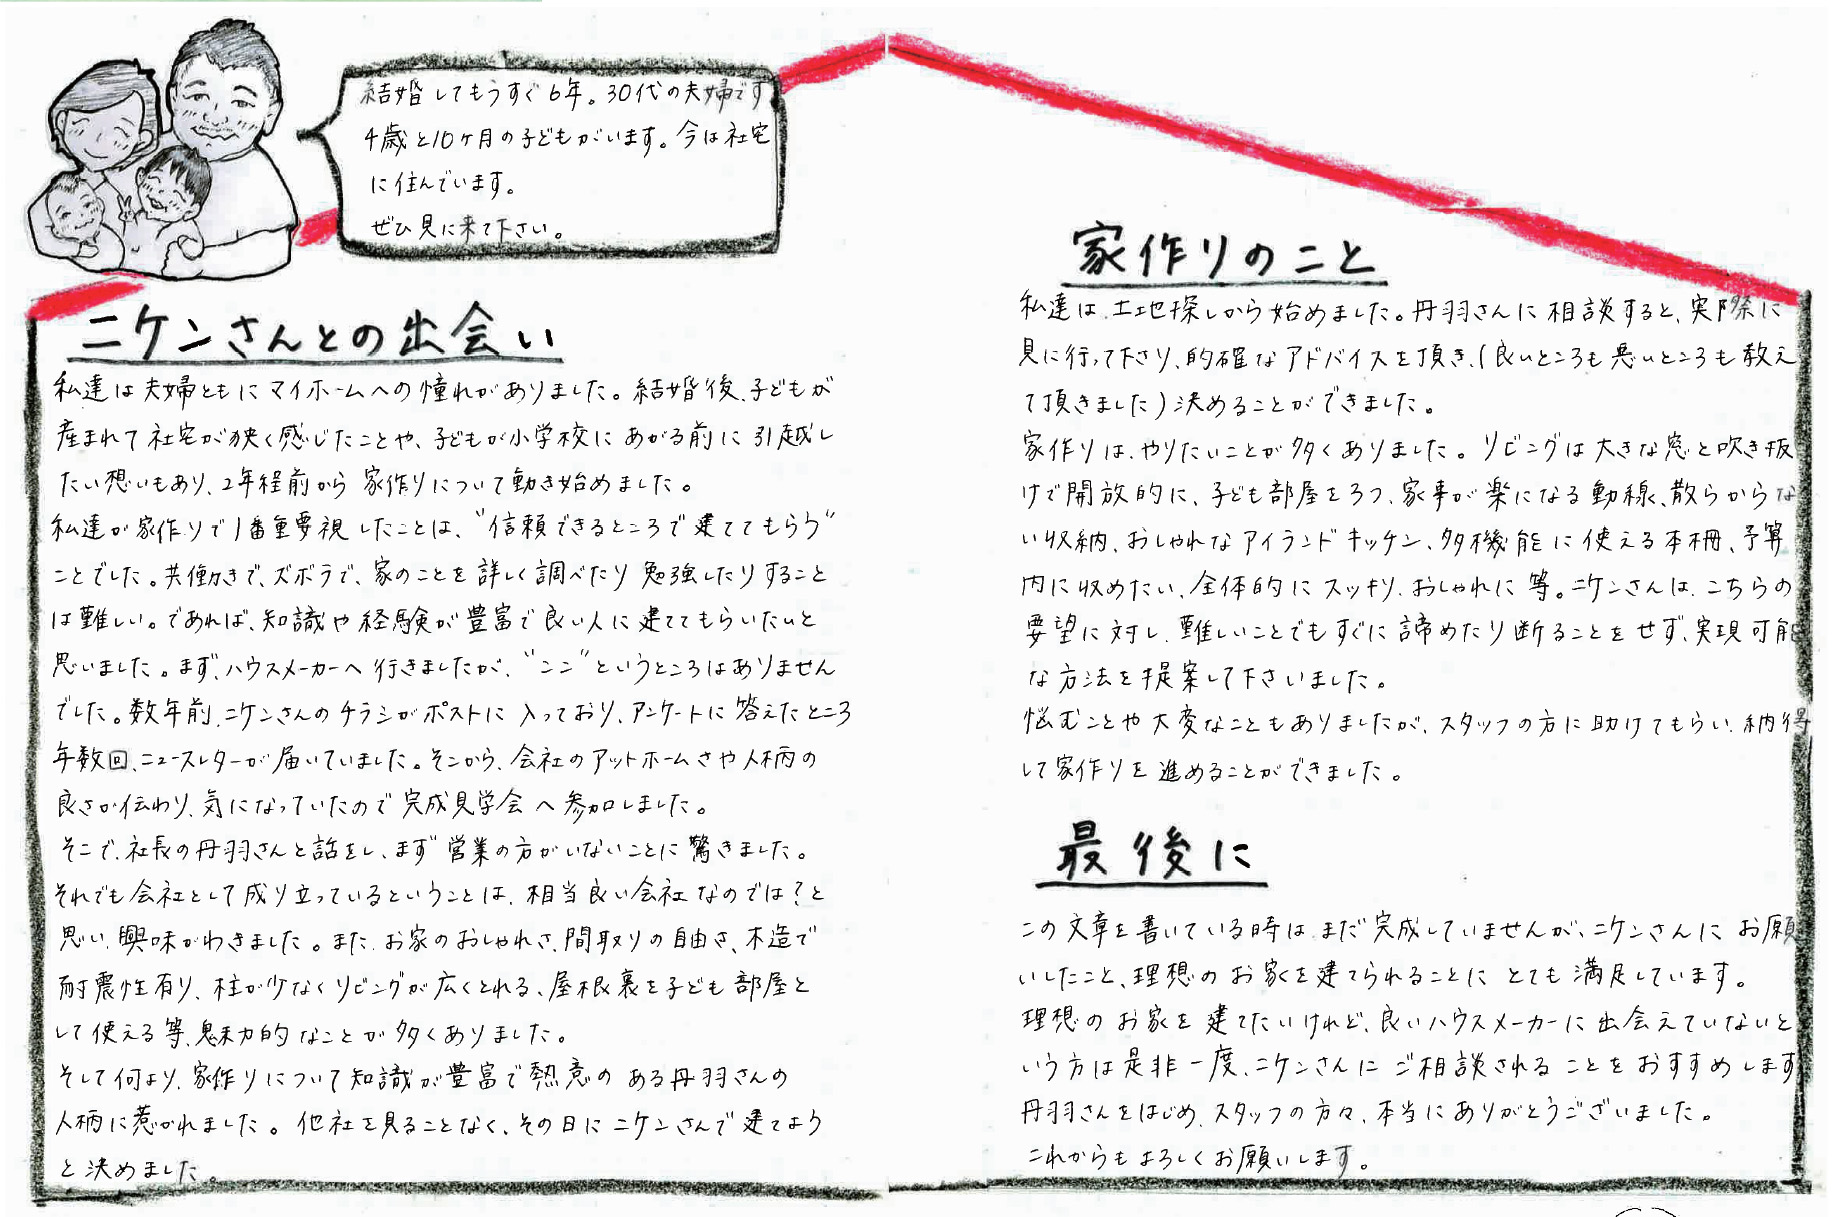 結婚してもうすぐ6年。30代の夫婦です
4歳と10ヶ月の子どもがいます。今は社宅
に住んでいます。
ぜひ見に来て下さい。
ニケンさんとの出会い
私達は夫婦ともにマイホームへの憧れがありました。結婚後、子どもが
産まれて社宅が狭く感じたことや、子どもが小学校にあがる前に引越し
たい想いもあり、2年程前から家作りについて動き始めました。
私達が家作りで1番重要視したことは、"信頼できるところで建ててもらう"
ことでした。共働きで、ズボラで、家のことを詳しく調べたり勉強したりすること
は難しい。であれば、知識や経験が豊富で良い人に建ててもらいたいと
思いました。まず、ハウスメーカーへ行きましたが、"ここ"というところはありません
でした。数年前、ニケンさんのチラシがポストに入っており、アンケートに答えたところ
年数回、ニュースレターが届いていました。そこから、会社のアットホームさや人柄の
良さが伝わり、気になっていたので完成見学会へ参加しました。
そこで、社長の丹羽さんと話をし、まず営業の方がいないことに驚きました。
それでも会社として成り立っているということは、相当良い会社なのでは?と
思い、興味がわきました。また、お家のおしゃれさ、間取りの自由さ、木造で
耐震性有り、柱が少なくリビングが広くとれる、屋根裏を子ども部屋と
して使える等、魅力的なことが多くありました。
そして何より、家作りについて知識が豊富で熱意のある丹羽さんの
人柄に惹かれました。他社を見ることなく、その日にニケンさんで建てよう
と決めました。
家作りのこと
私達は、土地探しから始めました。丹羽さんに相談すると、実際に
見に行って下さり、的確なアドバイスを頂き、(良いところも悪いところも教え
て頂きました)決めることができました。
家作りは、やりたいことが多くありました。リビングは大きな窓と吹き抜
けで開放的に、子ども部屋を3つ、家事が楽になる動線、散らからな
い収納、おしゃれなアイランドキッチン、多機能に使える本棚、予算
内に収めたい、全体的にスッキリ、おしゃれに等。ニケンさんは、こちらの
要望に対し、難しいことでもすぐに諦めたり断ることをせず、実現可能
な方法を提案して下さいました。
悩むことや大変なこともありましたが、スタッフの方に助けてもらい、納得
して家作りを進めることができました。
最後に
この文章を書いている時はまだ完成していませんが、ニケンさんにお願
いしたこと、理想のお家を建てられることにとても満足しています。
理想のお家を建てたいけれど、良いハウスメーカーに出会えていないと
いう方は是非一度、ニケンさんにご相談されることをおすすめします
丹羽さんをはじめ、スタッフの方々、本当にありがとうございました。
これからもよろしくお願いします。